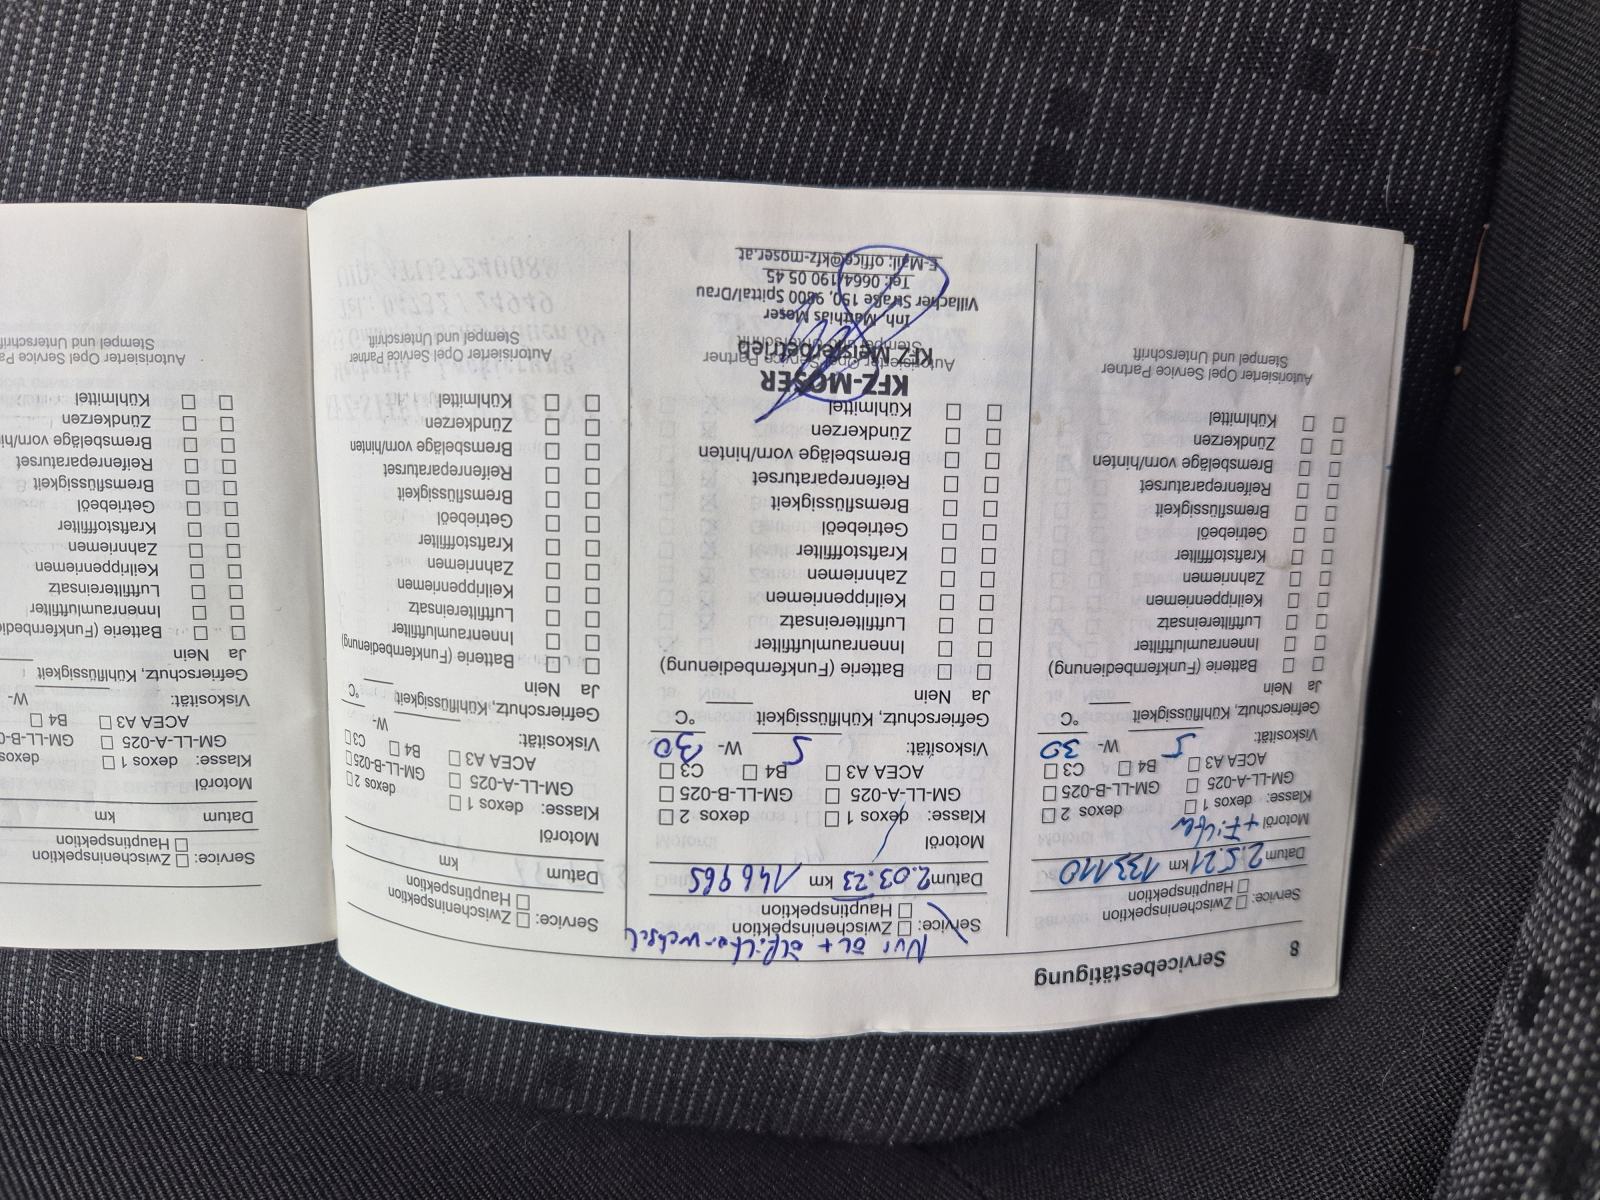 8 Servicebestätigung
Service: ☐ Zwischeninspektion
☐ Hauptinspektion
Datum 2.5.21 km 133110
Motoröl + Filter
Klasse: dexos 1 ☐ dexos 2 ☐
GM-LL-A-025 ☐ GM-LL-B-025 ☐
ACEA A3 ☐ B4 ☐ C3 ☐
Viskosität: 5 W- 30
Gefrierschutz, Kühlflüssigkeit ____ °C
Ja Nein
☐ ☐ Batterie (Funkfernbedienung)
☐ ☐ Innenraumluftfilter
☐ ☐ Luftfiltereinsatz
☐ ☐ Keilrippenriemen
☐ ☐ Zahnriemen
☐ ☐ Kraftstofffilter
☐ ☐ Getriebeöl
☐ ☐ Bremsflüssigkeit
☐ ☐ Reifenreparaturset
☐ ☐ Bremsbeläge vorn/hinten
☐ ☐ Zündkerzen
☐ ☐ Kühlmittel
Autorisierter Opel Service Partner
Stempel und Unterschrift
Nur Öl + Ölfilterwechsel
Service: ☐ Zwischeninspektion
☐ Hauptinspektion
Datum 2.03.23 km 146965
Motoröl
Klasse: dexos 1 ☐ dexos 2 ☐
GM-LL-A-025 ☐ GM-LL-B-025 ☐
ACEA A3 ☐ B4 ☐ C3 ☐
Viskosität: 5 W- 30
Gefrierschutz, Kühlflüssigkeit ____ °C
Ja Nein
☐ ☐ Batterie (Funkfernbedienung)
☐ ☐ Innenraumluftfilter
☐ ☐ Luftfiltereinsatz
☐ ☐ Keilrippenriemen
☐ ☐ Zahnriemen
☐ ☐ Kraftstofffilter
☐ ☐ Getriebeöl
☐ ☐ Bremsflüssigkeit
☐ ☐ Reifenreparaturset
☐ ☐ Bremsbeläge vorn/hinten
☐ ☐ Zündkerzen
☐ ☐ Kühlmittel
KFZ-MOSER
Autorisierter Opel Service Partner
KFZ Meisterbetrieb
Stempel und Unterschrift
Inh. Matthias Moser
Villacher Straße 150, 9800 Spittal/Drau
Tel: 0664/190 05 45
E-Mail: office@kfz-moser.at
Service: ☐ Zwischeninspektion
☐ Hauptinspektion
Datum km
Motoröl
Klasse: dexos 1 ☐ dexos 2 ☐
GM-LL-A-025 ☐ GM-LL-B-025 ☐
ACEA A3 ☐ B4 ☐ C3 ☐
Viskosität: ____ W- ____
Gefrierschutz, Kühlflüssigkeit ____ °C
Ja Nein
☐ ☐ Batterie (Funkfernbedienung)
☐ ☐ Innenraumluftfilter
☐ ☐ Luftfiltereinsatz
☐ ☐ Keilrippenriemen
☐ ☐ Zahnriemen
☐ ☐ Kraftstofffilter
☐ ☐ Getriebeöl
☐ ☐ Bremsflüssigkeit
☐ ☐ Reifenreparaturset
☐ ☐ Bremsbeläge vorn/hinten
☐ ☐ Zündkerzen
☐ ☐ Kühlmittel
Autorisierter Opel Service Partner
Stempel und Unterschrift
Service: ☐ Zwischeninspektion
☐ Hauptinspektion
Datum km
Motoröl
Klasse: dexos 1 ☐ dexos
GM-LL-A-025 ☐ GM-LL-B-0
ACEA A3 ☐ B4 ☐
Viskosität: ____ W-
Gefrierschutz, Kühlflüssigkeit
Ja Nein
☐ ☐ Batterie (Funkfernbedie
☐ ☐ Innenraumluftfilter
☐ ☐ Luftfiltereinsatz
☐ ☐ Keilrippenriemen
☐ ☐ Zahnriemen
☐ ☐ Kraftstofffilter
☐ ☐ Getriebeöl
☐ ☐ Bremsflüssigkeit
☐ ☐ Reifenreparaturset
☐ ☐ Bremsbeläge vorn/hi
☐ ☐ Zündkerzen
☐ ☐ Kühlmittel
Autorisierter Opel Service Pa
Stempel und Unterschrift